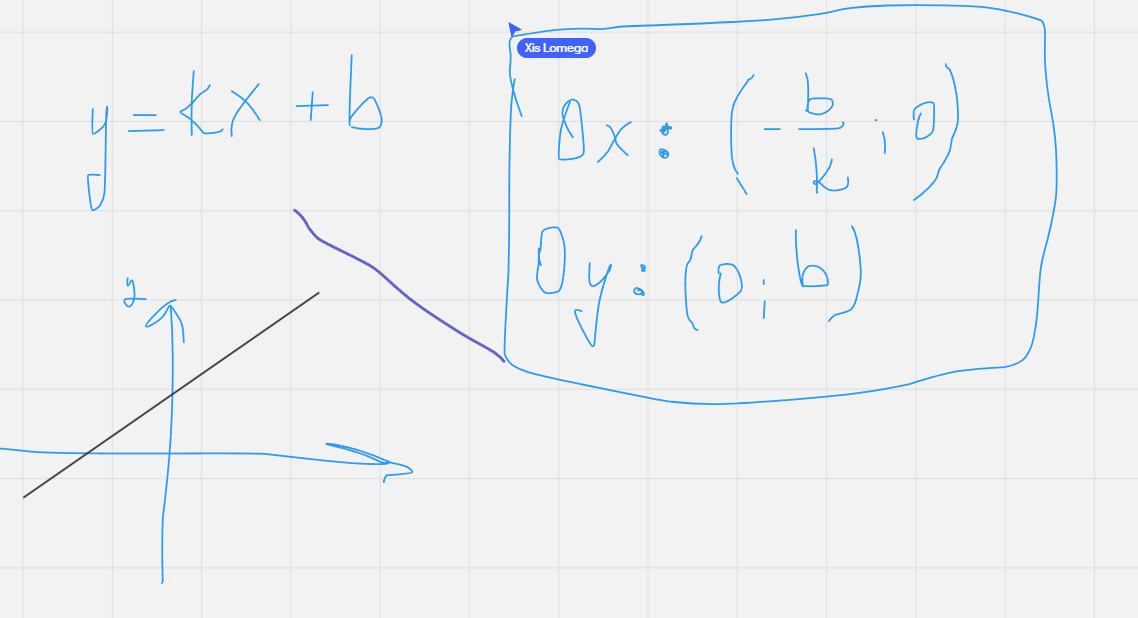 y = kx + b
Xis Lomega
0x: (-b/k ; 0)
0y: (0; b)
y